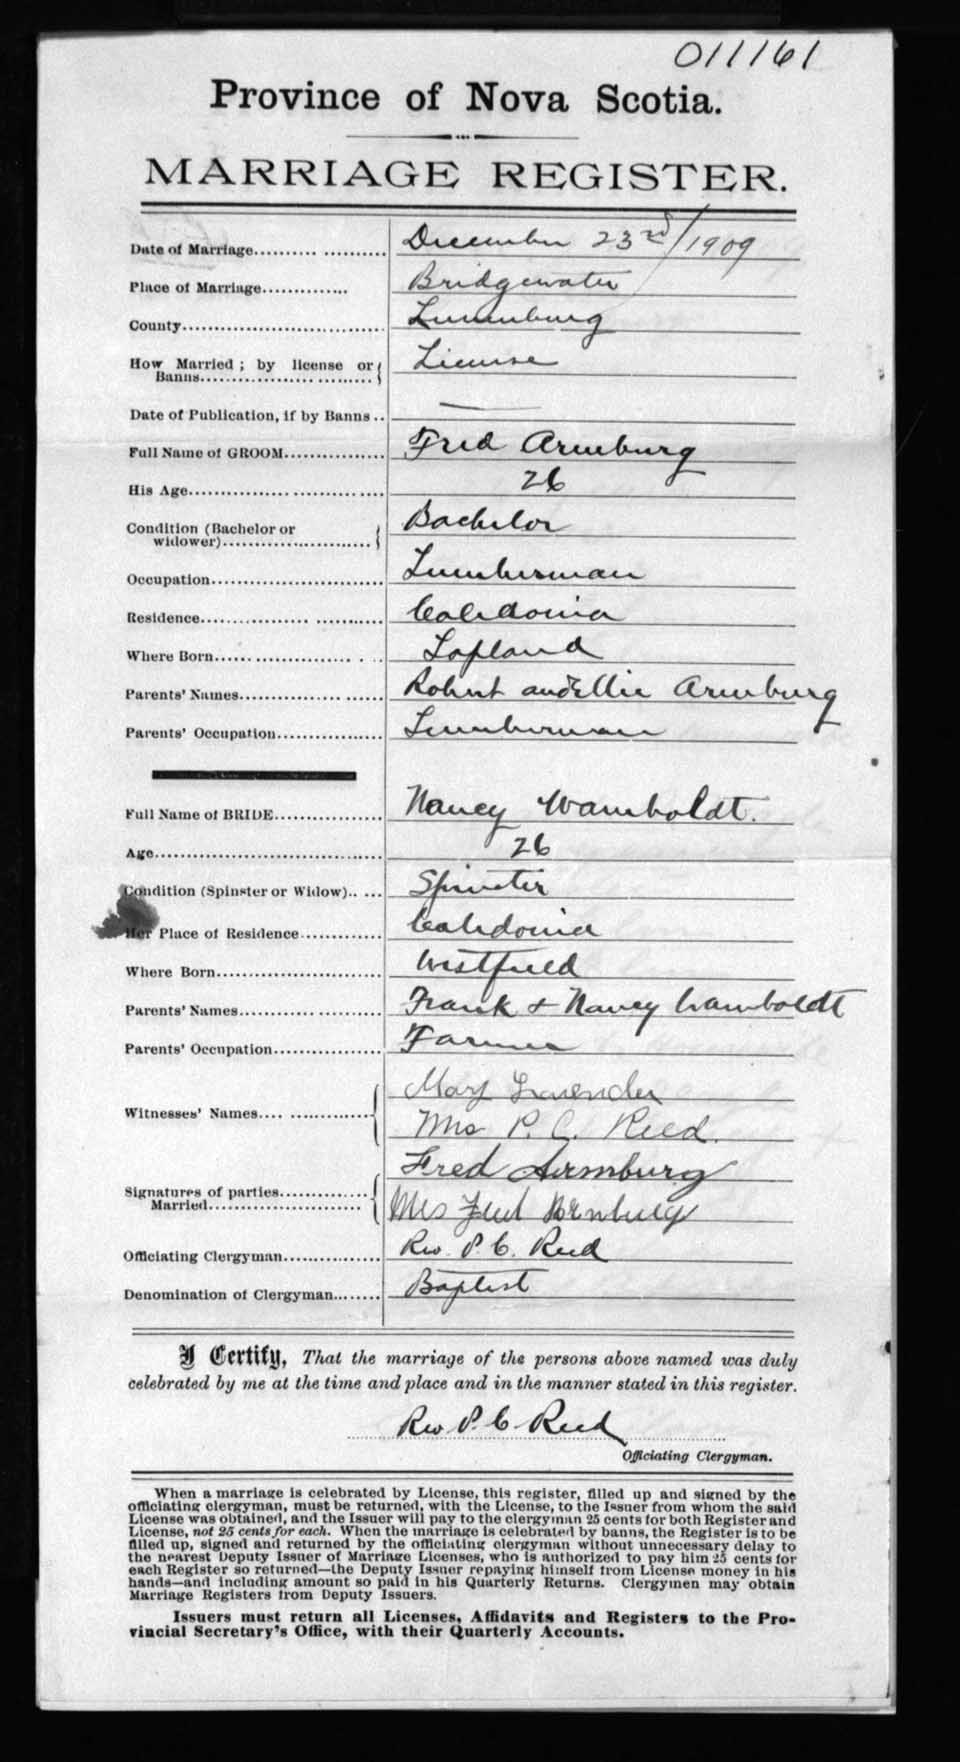 011161
Province of Nova Scotia.
MARRIAGE REGISTER.
Date of Marriage.......... .......... December 23rd/1909
Place of Marriage.............. Bridgewater
County.............................. Lunenburg
How Married ; by license or Banns.............................. License
Date of Publication, if by Banns .. —
Full Name of GROOM............... Fred Armburg
His Age.............................. 26
Condition (Bachelor or widower).............................. Bachelor
Occupation.............................. Lumberman
Residence.............................. Caledonia
Where Born.............................. Lapland
Parents' Names.............................. Robert and Ellie Armburg
Parents' Occupation.................. Lumberman
Full Name of BRIDE.................. Nancy Wamboldt.
Age.............................. 26
Condition (Spinster or Widow)..... Spinster
Her Place of Residence............. Caledonia
Where Born.............................. Westfield
Parents' Names.............................. Frank & Nancy Wamboldt
Parents' Occupation.................. Farmer
Witnesses' Names.... .............. Mary Lavender
Mrs P. C. Reed.
Signatures of parties Married.............................. Fred Armburg
Mrs Fred Armburg
Officiating Clergyman............... Rev. P. C. Reed
Denomination of Clergyman....... Baptist
I Certify, That the marriage of the persons above named was duly
celebrated by me at the time and place and in the manner stated in this register.
Rev P. C Reed
Officiating Clergyman.
When a marriage is celebrated by License, this register, filled up and signed by the
officiating clergyman, must be returned, with the License, to the Issuer from whom the said
License was obtained, and the Issuer will pay to the clergyman 25 cents for both Register and
License, not 25 cents for each. When the marriage is celebrated by banns, the Register is to be
filled up, signed and returned by the officiating clergyman without unnecessary delay to
the nearest Deputy Issuer of Marriage Licenses, who is authorized to pay him 25 cents for
each Register so returned—the Deputy Issuer repaying himself from License money in his
hands—and including amount so paid in his Quarterly Returns. Clergymen may obtain
Marriage Registers from Deputy Issuers.
Issuers must return all Licenses, Affidavits and Registers to the Pro-
vincial Secretary's Office, with their Quarterly Accounts.